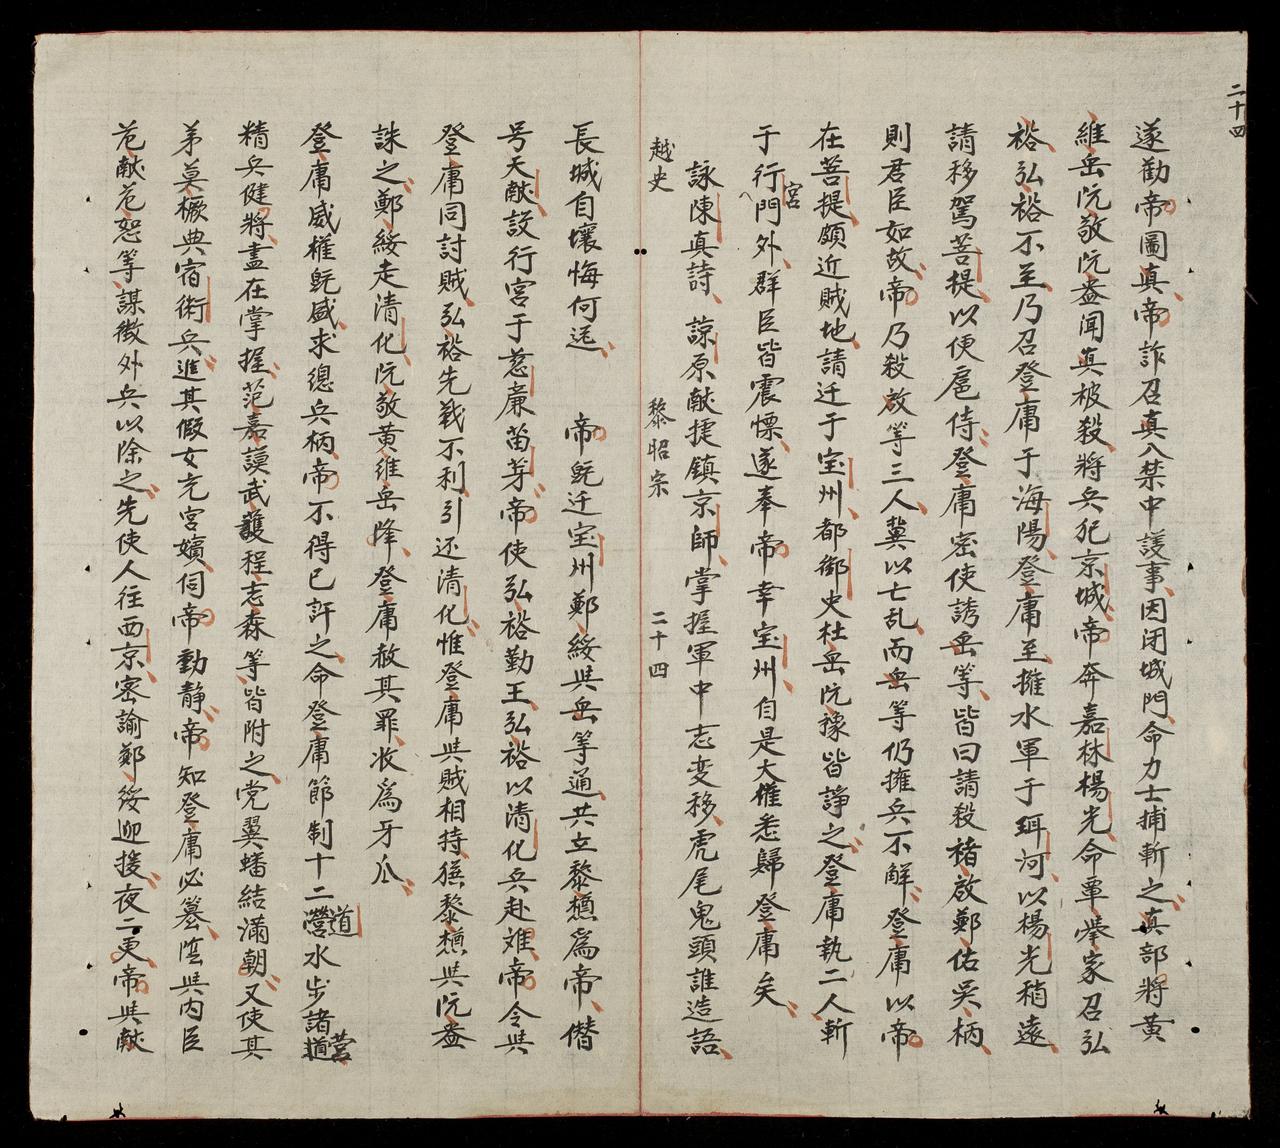 二十四
遂勸帝圖真帝詐召真入禁中議事因閉城門命力士捕斬之真部將黃
維岳阮敬阮盎闻真被殺將兵犯京城帝奔嘉林楊光命覃舉家召弘
裕弘裕不至乃召登庸于海陽登庸至擁水軍于珥河以楊光稍遠
請移駕菩提以便扈侍登庸密使誘岳等皆曰請殺褚啟鄭佑吳柄
則君臣如故帝乃殺啟等三人冀以弋乱而岳等仍擁兵不解登庸以帝
在菩提頗近賊地請迁于宝州都御史杜岳阮豫皆諍之登庸執二人斬
于行宮門外群臣皆震慄遂奉帝幸宝州自是大權悉歸登庸矣
詠陳真詩 諒原献捷鎮京師掌握軍中志变移虎尾鬼頭誰造語
越史 黎昭宗 二十四
長城自壞悔何追 帝既迁宝州鄭綏與岳等通共立黎槱爲帝僭
号天献設行宮于慈廉苗芽帝使弘裕勤王弘裕以清化兵赴难帝令與
登庸同討賊弘裕先戦不利引还清化惟登庸與賊相持獲黎槱與阮盎
誅之鄭綏走清化阮敬黄維岳降登庸赦其罪收爲牙爪
登庸威權既盛求總兵柄帝不得已許之命登庸節制十二道營水步諸營道
精兵健將盡在掌握范嘉謨武護程志森等皆附之党翼蟠結滿朝又使其
弟莫橛典宿衛兵進其假女充宮嬪伺帝動静帝知登庸必篡陰與内臣
范献范恕等謀徴外兵以除之先使人往西京密諭鄭綏迎援夜二更帝與献